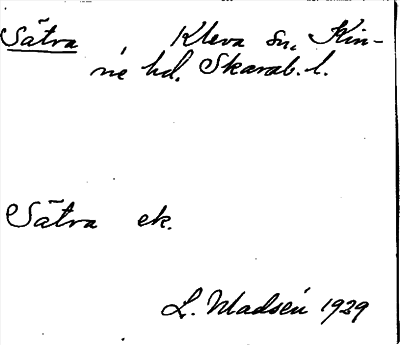 Sätra Kleva sn. Kin-
ne hd. Skarab. l.
Sätra ek.
L. Madsén 1929